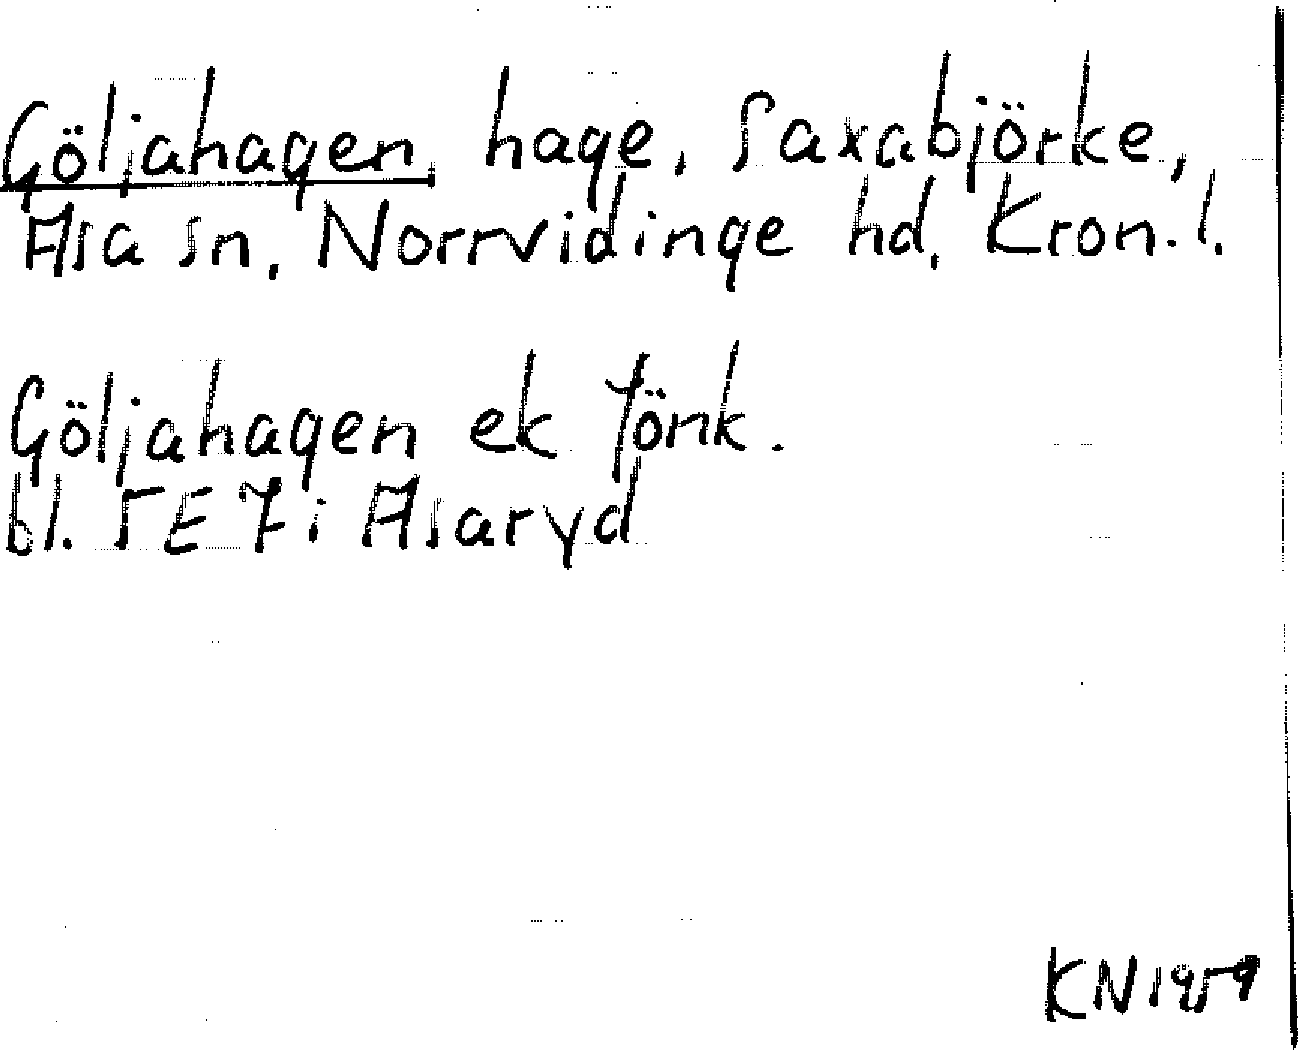 Göljahagen, hage, Saxabjörke,
Asa sn, Norrvidinge hd, Kron. l.
Göljahagen ek Jönk.
bl. 5E7i Asaryd
KN 1959